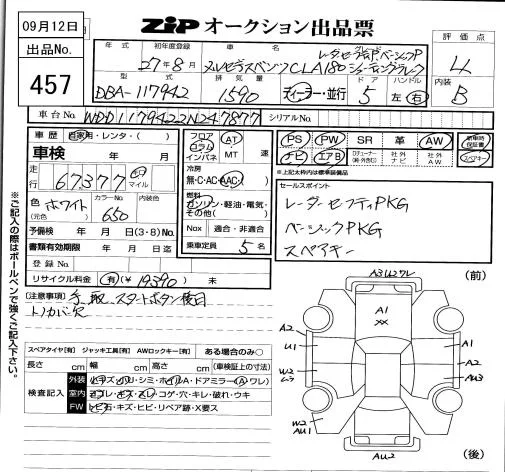 09月12日
出品No.
457
ZiP オークション出品票
評価点
4
内装
B
年式 初年度登録 車名 グレード
27年8月 メルセデスベンツCLA180 レーダーセーフティP、ベーシックP シューティングブレーク
型式 排気量 ドア ハンドル
DBA-117942 1590 ディーラー・並行 5 左 右
車台No. WDD1179422N247877 シリアルNo.
車歴 自家用・レンタ・( )
車検 年 月
走行 67377 km マイル
色 ホワイト (元色) カラーNo. 650 内装色
予備検 年 月 日(3・8)No.
書類有効期限 年 月 日迄
登録No.
リサイクル料金 有(¥ 19590 ) 未
フロア コラム インパネ AT MT 速
冷房 無・C・AC・AAC( )
燃料 ガソリン・軽油・電気・その他( )
Nox 適合・非適合
乗車定員 5 名
PS PW SR 革 AW 新車時保証書
ナビ エアB 社外ナビ 社外AW スペアキー
※上記太枠内は標準装備品
セールスポイント
レーダーセフティPKG
ベーシックPKG
スペアキー
[注意事項] 手、取、スタートボタン後日
トノカバ欠
スペアタイヤ[有] ジャッキ工具[有] AWロックキー[有] ある場合のみ○
長さ cm 幅 cm 高さ cm (車検証上の寸法)
検査記入
外装 キズ・凹・シミ・ホイルA・ドアミラー(A・ワレ)
室内 ヨゴレ・キズ・スレ・コゲ・穴・キレ・破れ・ウキ
FW 飛石・キズ・ヒビ・リペア跡・X要ス
※ご記入の際はボールペンで強くご記入下さい。
(前)
A3U2ワレ
A1
XX
A2
U1
W2
ムラ
W2
AU1
A1
A2
AU3
AU2
(後)